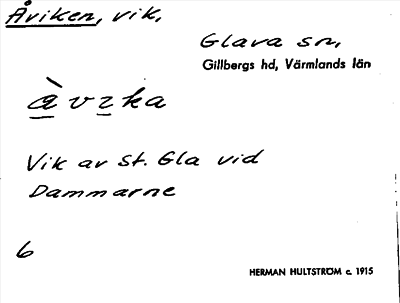 Åviken, vik,
Glava sn,
Gillbergs hd, Värmlands län
àvika
Vik av St. Gla vid
Dammarne
6
HERMAN HULTSTRÖM c. 1915